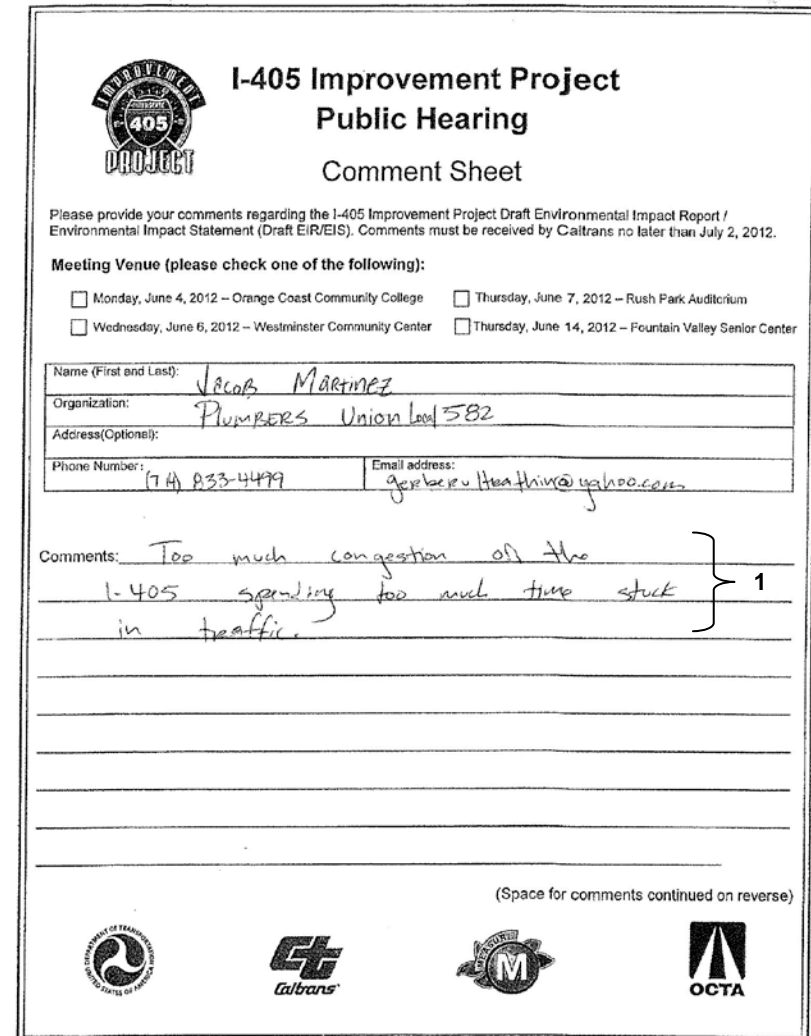 IMPROVEMENT
405
PROJECT
I-405 Improvement Project
Public Hearing
Comment Sheet
Please provide your comments regarding the I-405 Improvement Project Draft Environmental Impact Report /
Environmental Impact Statement (Draft EIR/EIS). Comments must be received by Caltrans no later than July 2, 2012.
Meeting Venue (please check one of the following):
Monday, June 4, 2012 – Orange Coast Community College
Thursday, June 7, 2012 – Rush Park Auditorium
Wednesday, June 6, 2012 – Westminster Community Center
Thursday, June 14, 2012 – Fountain Valley Senior Center
Name (First and Last): Jacob Martinez
Organization: Plumbers Union Local 582
Address(Optional):
Phone Number: 833-4499
Email address:
Comments: Too much congestion on the
I-405 spending too much time stuck
in traffic.
1
(Space for comments continued on reverse)
DEPARTMENT OF TRANSPORTATION
UNITED STATES OF AMERICA
Caltrans
MEASURE
M
OCTA